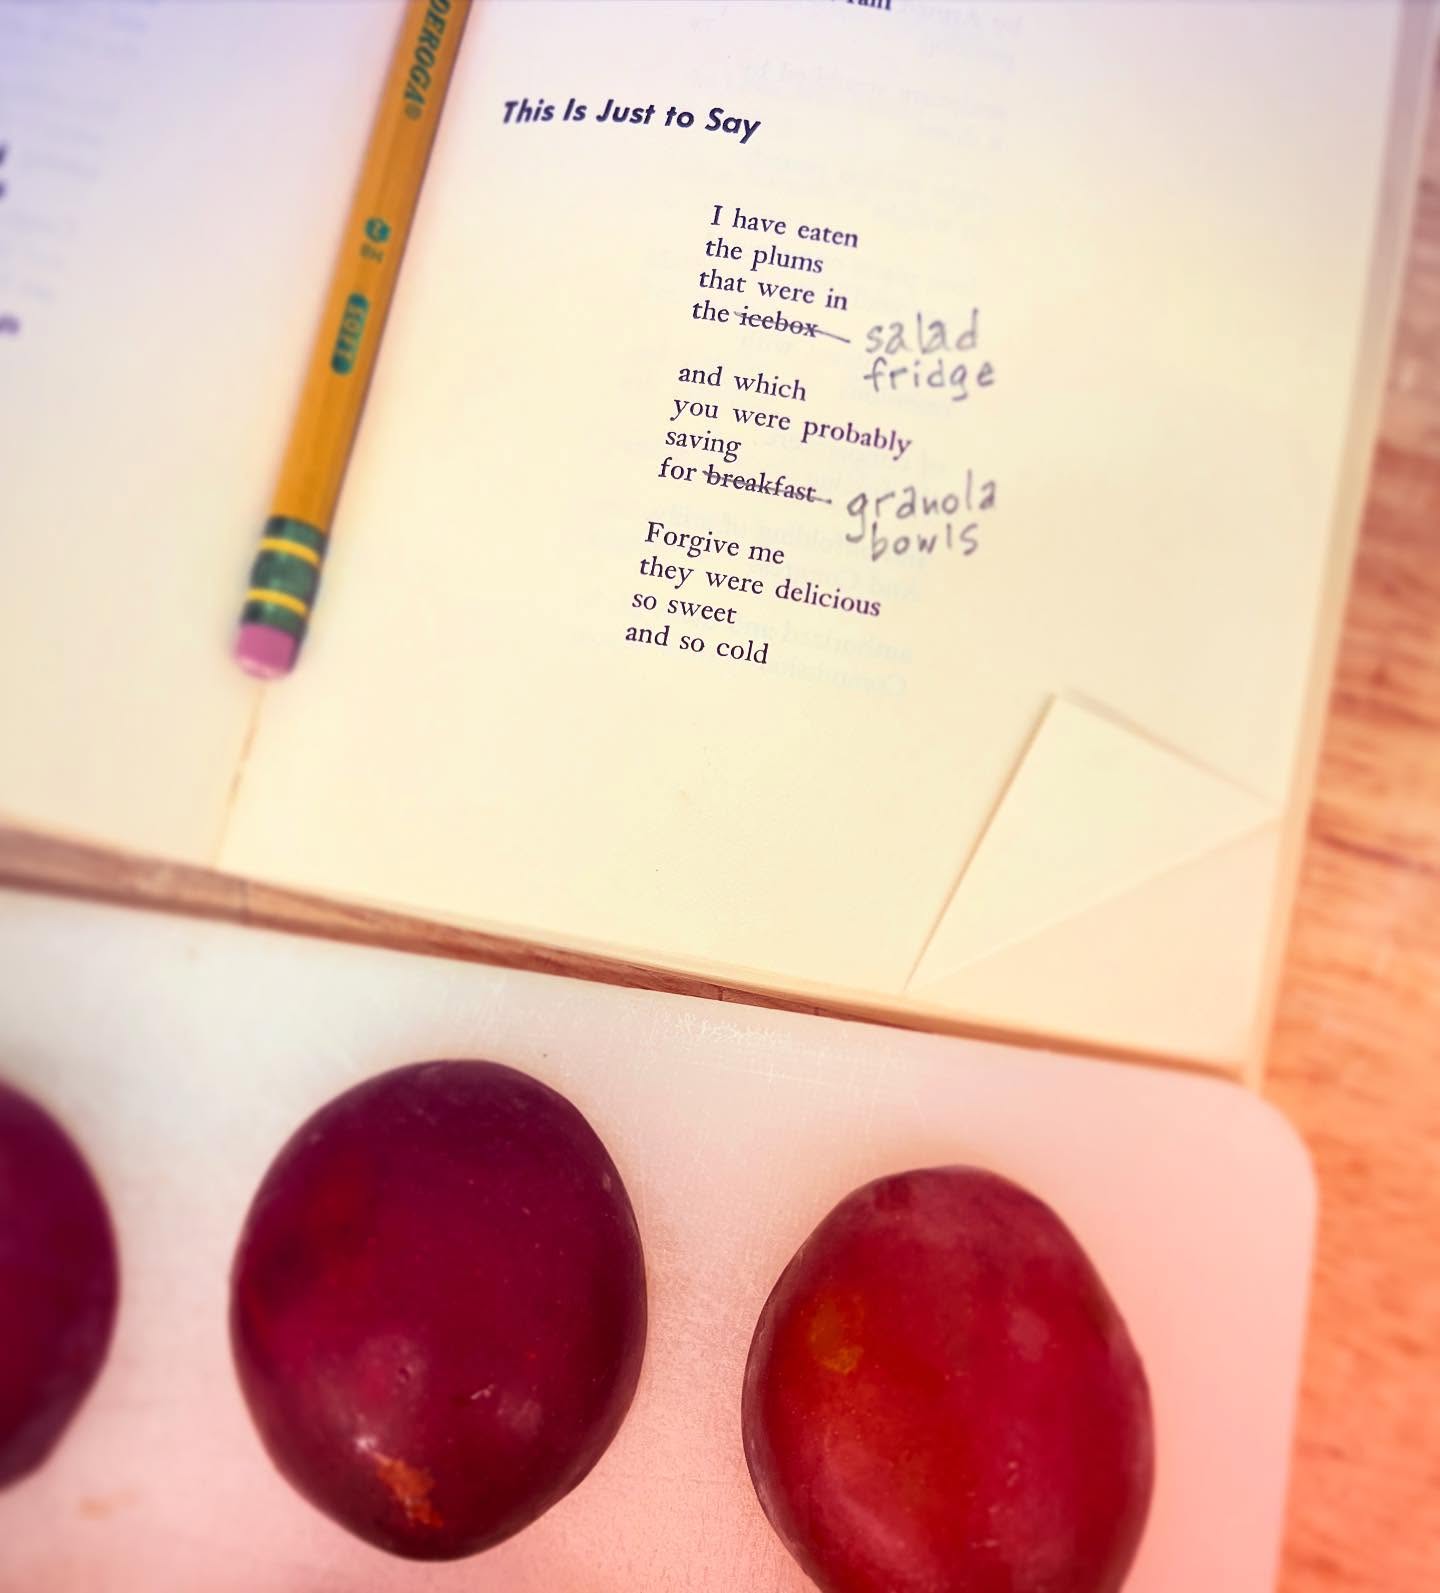 This Is Just to Say
I have eaten
the plums
that were in
the icebox salad
fridge
and which
you were probably
saving
for breakfast granola
bowls
Forgive me
they were delicious
so sweet
and so cold
2
HB